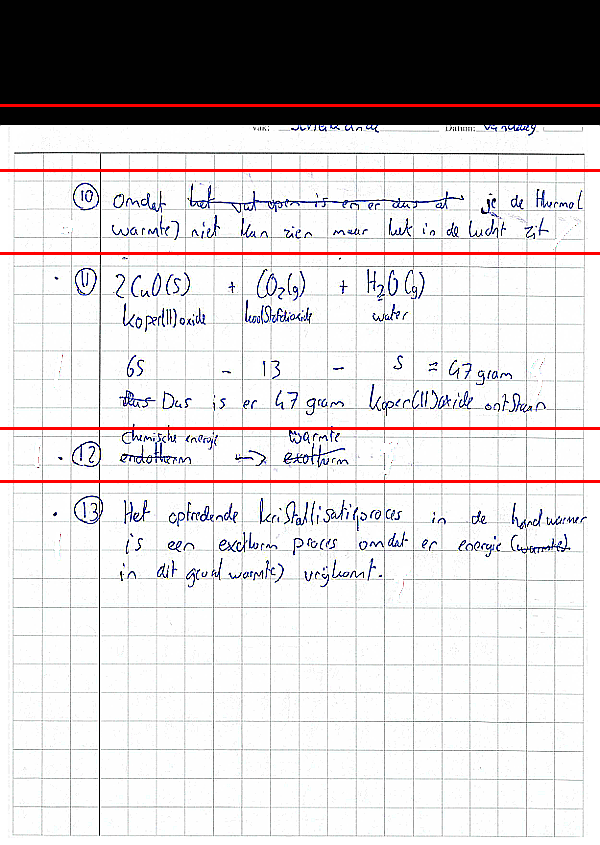 vak: scheikunde Datum: vandaag
10 Omdat het vat open is en er dus at je de thermol
warmte) niet kan zien maar het in de lucht zit
11 2CuO(s) + CO2(g) + H2O(g)
koper(II)oxide koolstofdioxide water
65 - 13 - 5 = 47 gram
dus Dus is er 47 gram koper(II)oxide ontstaan
chemische energie warmte
12 endotherm -> exotherm
13 Het optredende kristallisatieproces in de handwarmer
is een exotherm proces omdat er energie (warmte)
in dit geval warmte) vrijkomt.